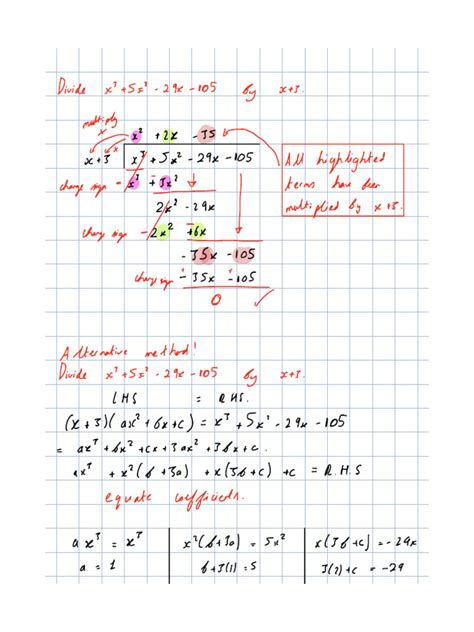 Divide x³ + 5x² - 29x - 105 by x+3.
multiply
x² + 2x - 35
x
x+3 | x³ + 5x² - 29x - 105
change sign - x³ + 3x²
2x² - 29x
change sign - 2x² + 6x
- 35x - 105
change sign - 35x - 105
0 ✓
All highlighted
terms have been
multiplied by x+3.
Alternative method!
Divide x³ + 5x² - 29x - 105 by x+3.
LHS = RHS.
(x+3)(ax² + bx + c) = x³ + 5x² - 29x - 105
= ax³ + bx² + cx + 3ax² + 3bx + c.
ax³ + x²(b+3a) + x(3b+c) + c = R.H.S
equate coefficients.
ax³ = x³
a = 1
x²(b+3a) = 5x²
b+3(1) = 5
x(3b+c) = -29x
3(2)+c = -29